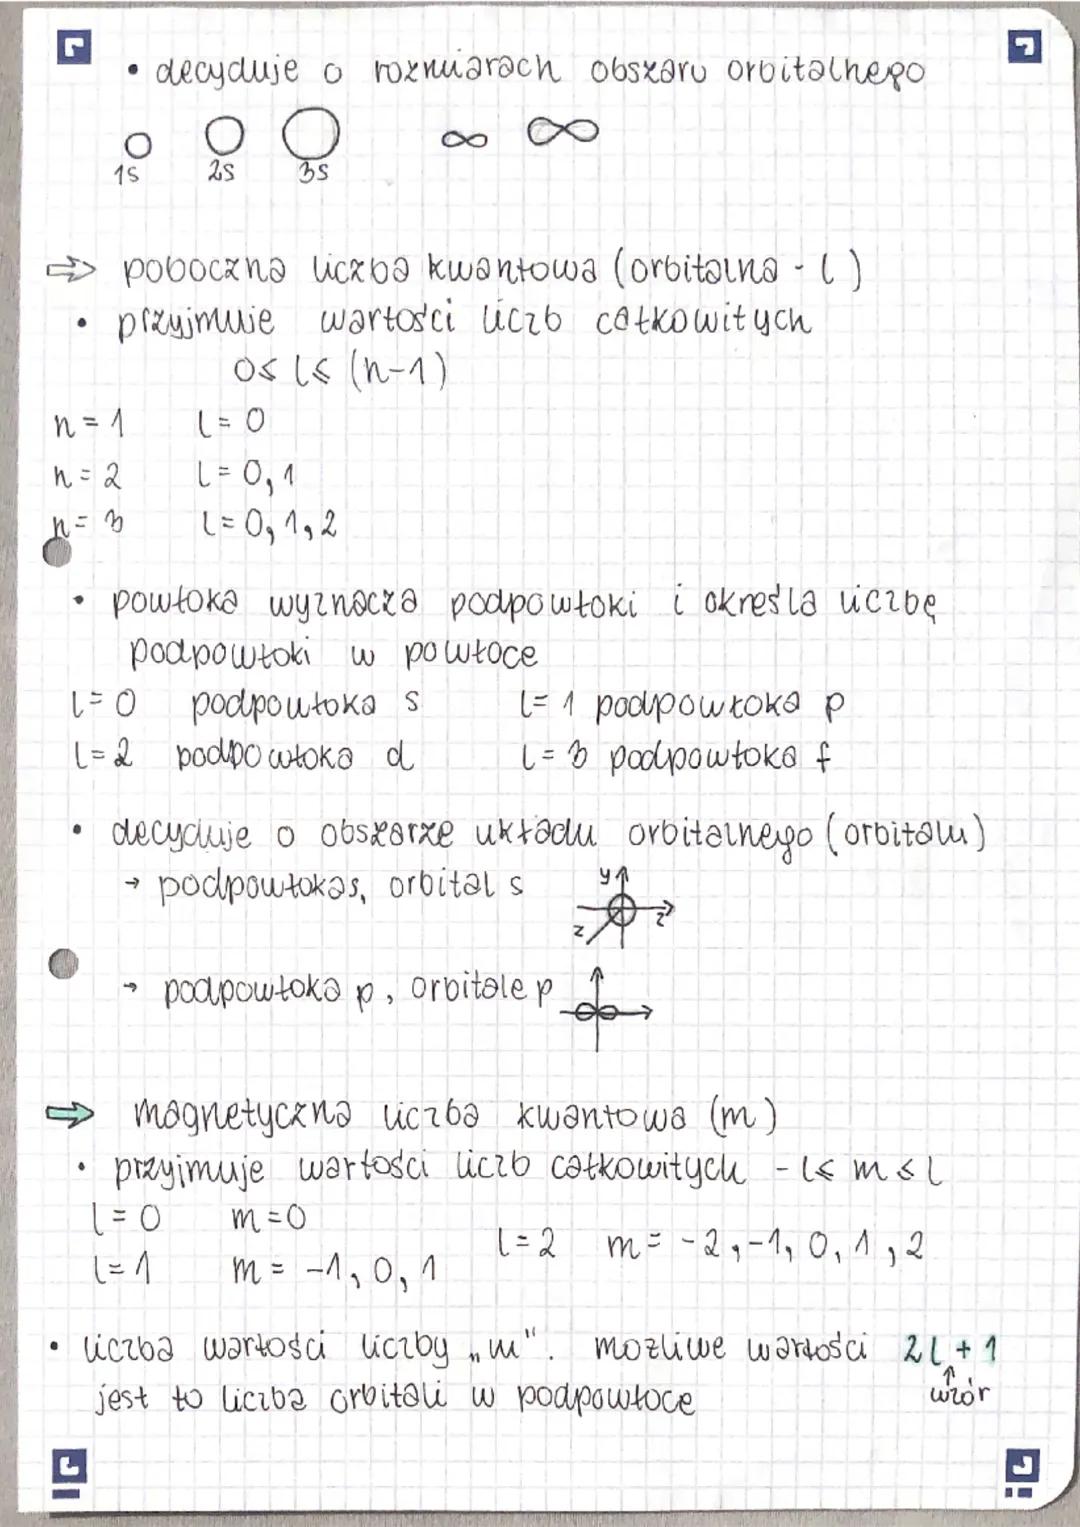 • decyduje o rozmiarach obszaru orbitalnego
1s 2s 3s
⇒ poboczna liczba kwantowa (orbitalna - l)
• przyjmuje wartości liczb całkowitych
0 ≤ l ≤ (n-1)
n = 1 l = 0
n = 2 l = 0, 1
n = 3 l = 0, 1, 2
• powłoka wyznacza podpowłoki i określa liczbę
podpowłoki w powłoce
l = 0 podpowłoka s l = 1 podpowłoka p
l = 2 podpowłoka d l = 3 podpowłoka f
• decyduje o obszarze układu orbitalnego (orbitalu)
→ podpowłoka s, orbital s y z z
→ podpowłoka p, orbitale p
⇒ magnetyczna liczba kwantowa (m)
• przyjmuje wartości liczb całkowitych -l ≤ m ≤ l
l = 0 m = 0
l = 1 m = -1, 0, 1 l = 2 m = -2, -1, 0, 1, 2
• liczba wartości liczby „m". możliwe wartości 2l + 1
jest to liczba orbitali w podpowłoce ↑ wzór